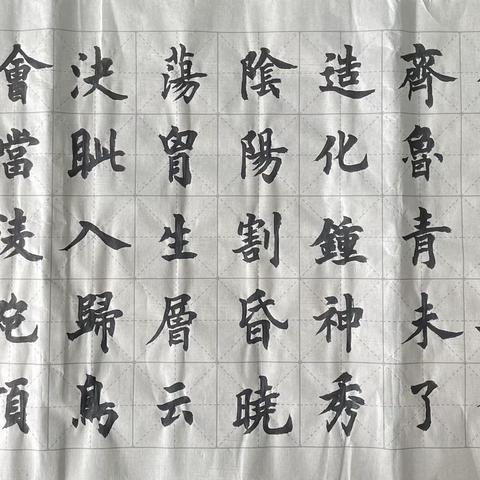 齊魯青未了
造化鍾神秀
陰陽割昏曉
蕩胷生層云
決眦入歸鳥
會當凌絶頂